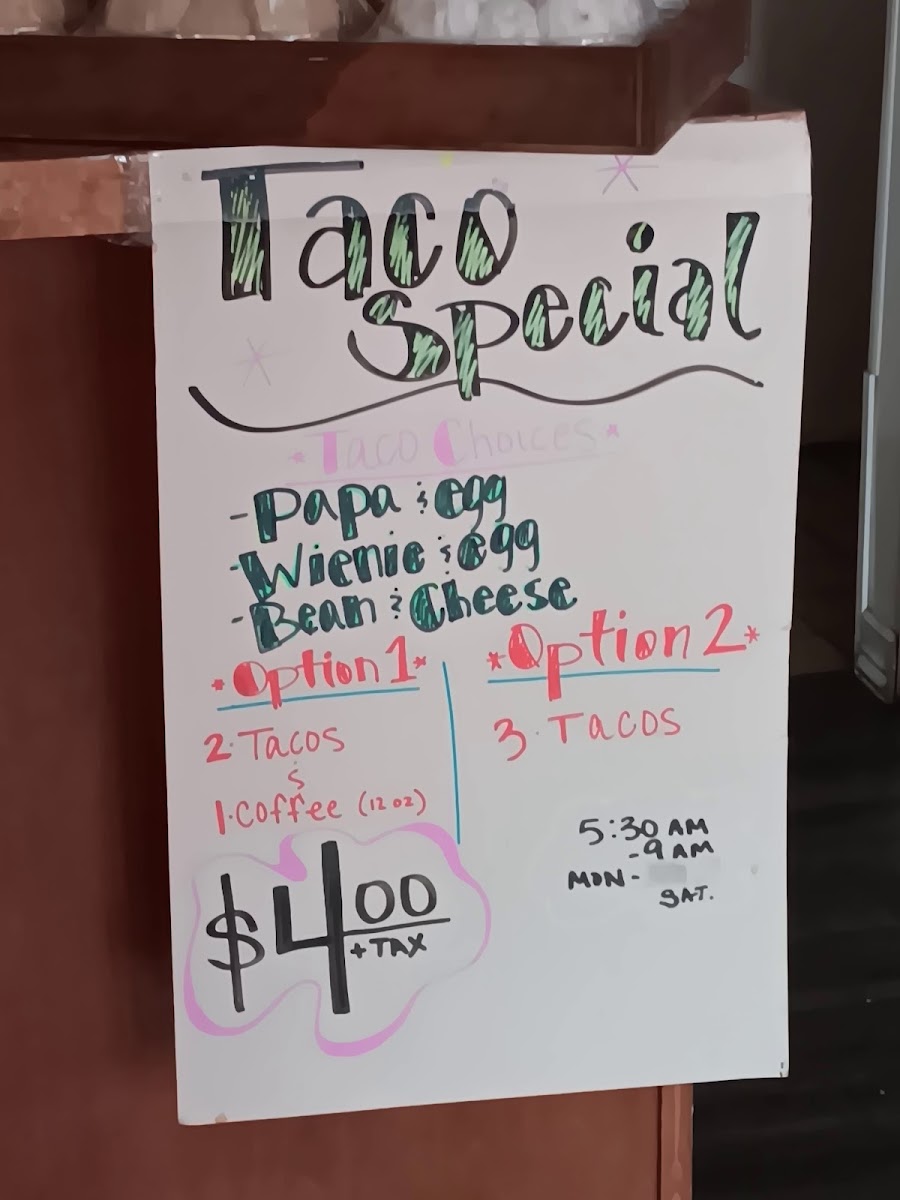 Taco
Special
*Taco Choices*
- Papa & egg
- Wienie & egg
- Bean & Cheese
*Option 1*
2. Tacos
&
1. Coffee (12 oz)
$4.00
+ TAX
*Option 2*
3. Tacos
5:30 AM
- 9 AM
MON -
SAT.